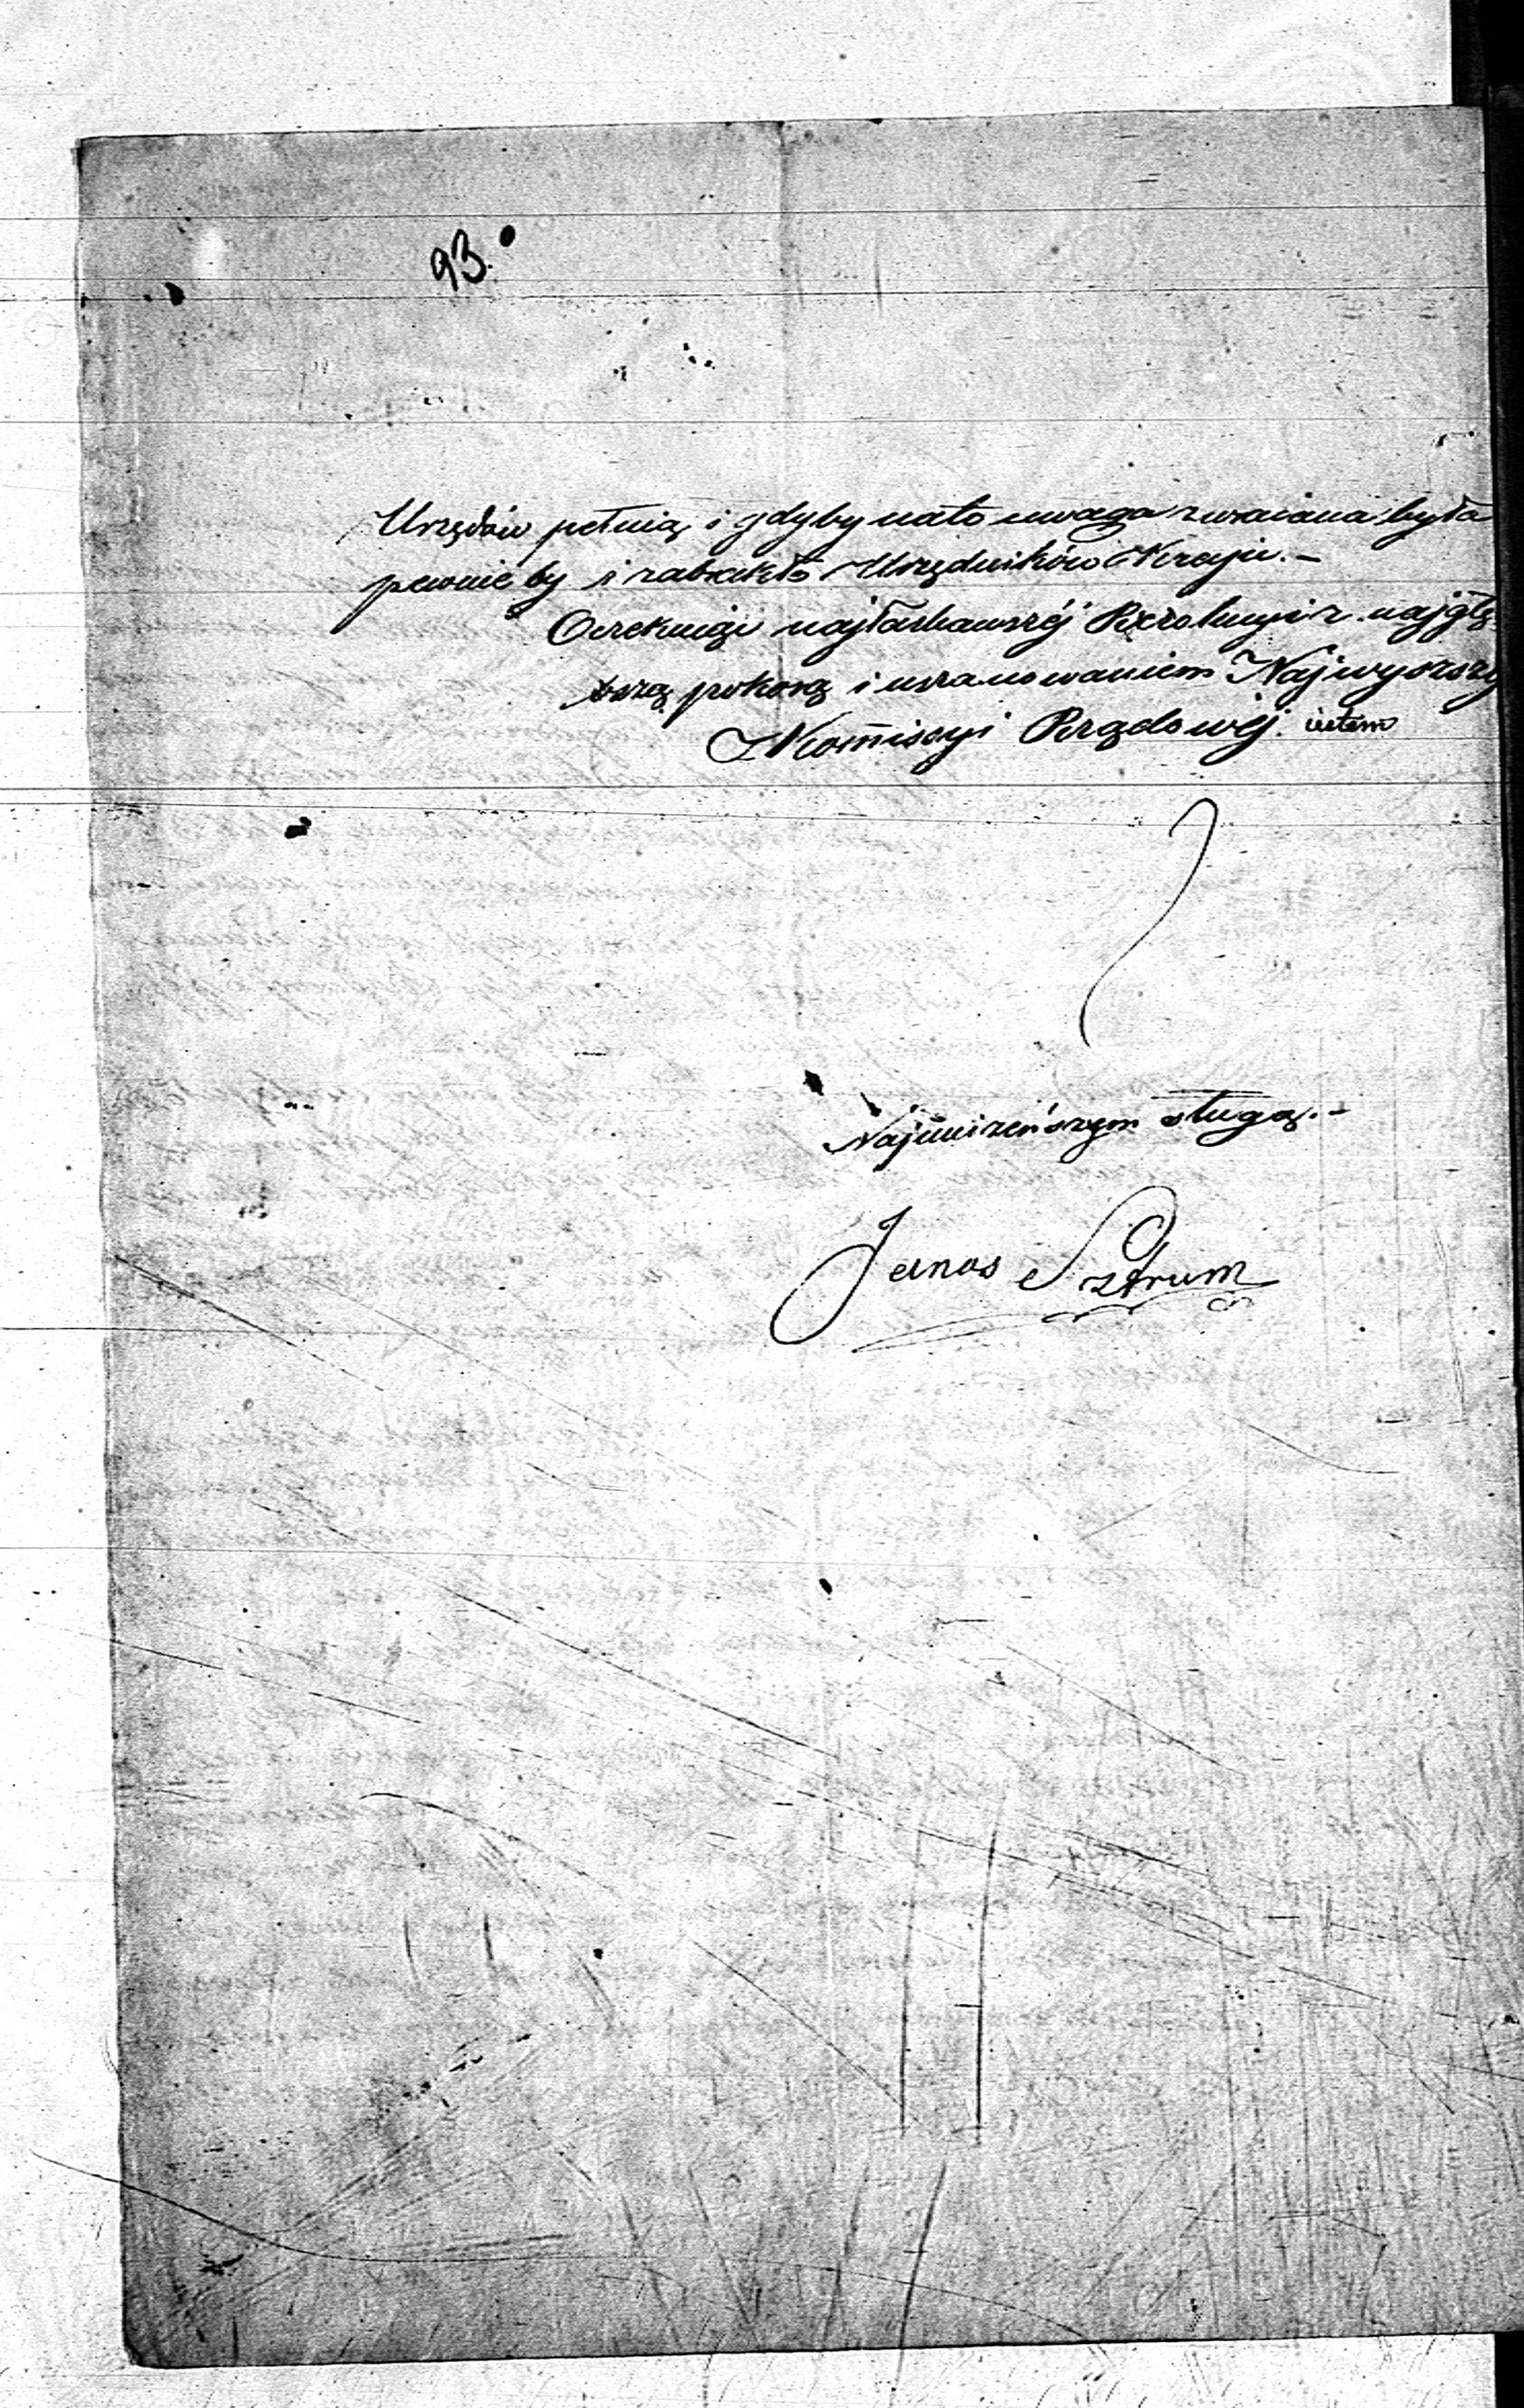 93.
Urzędów pełnią, i gdyby na to uwaga zwracana była
pewnie by i zabrakło Urzędników Kraju. –
Oczekując najłaskawszéj Rezolucyi z najgłę-
bszą pokorą i uszanowaniem Najwyższej
Kommissyi Rządowéj. iestem
Najuniżeńszym sługą. –
Janos Sztrum